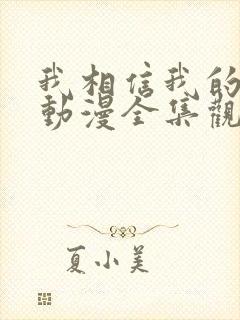 我相信我的
動漫全集觀
夏小美